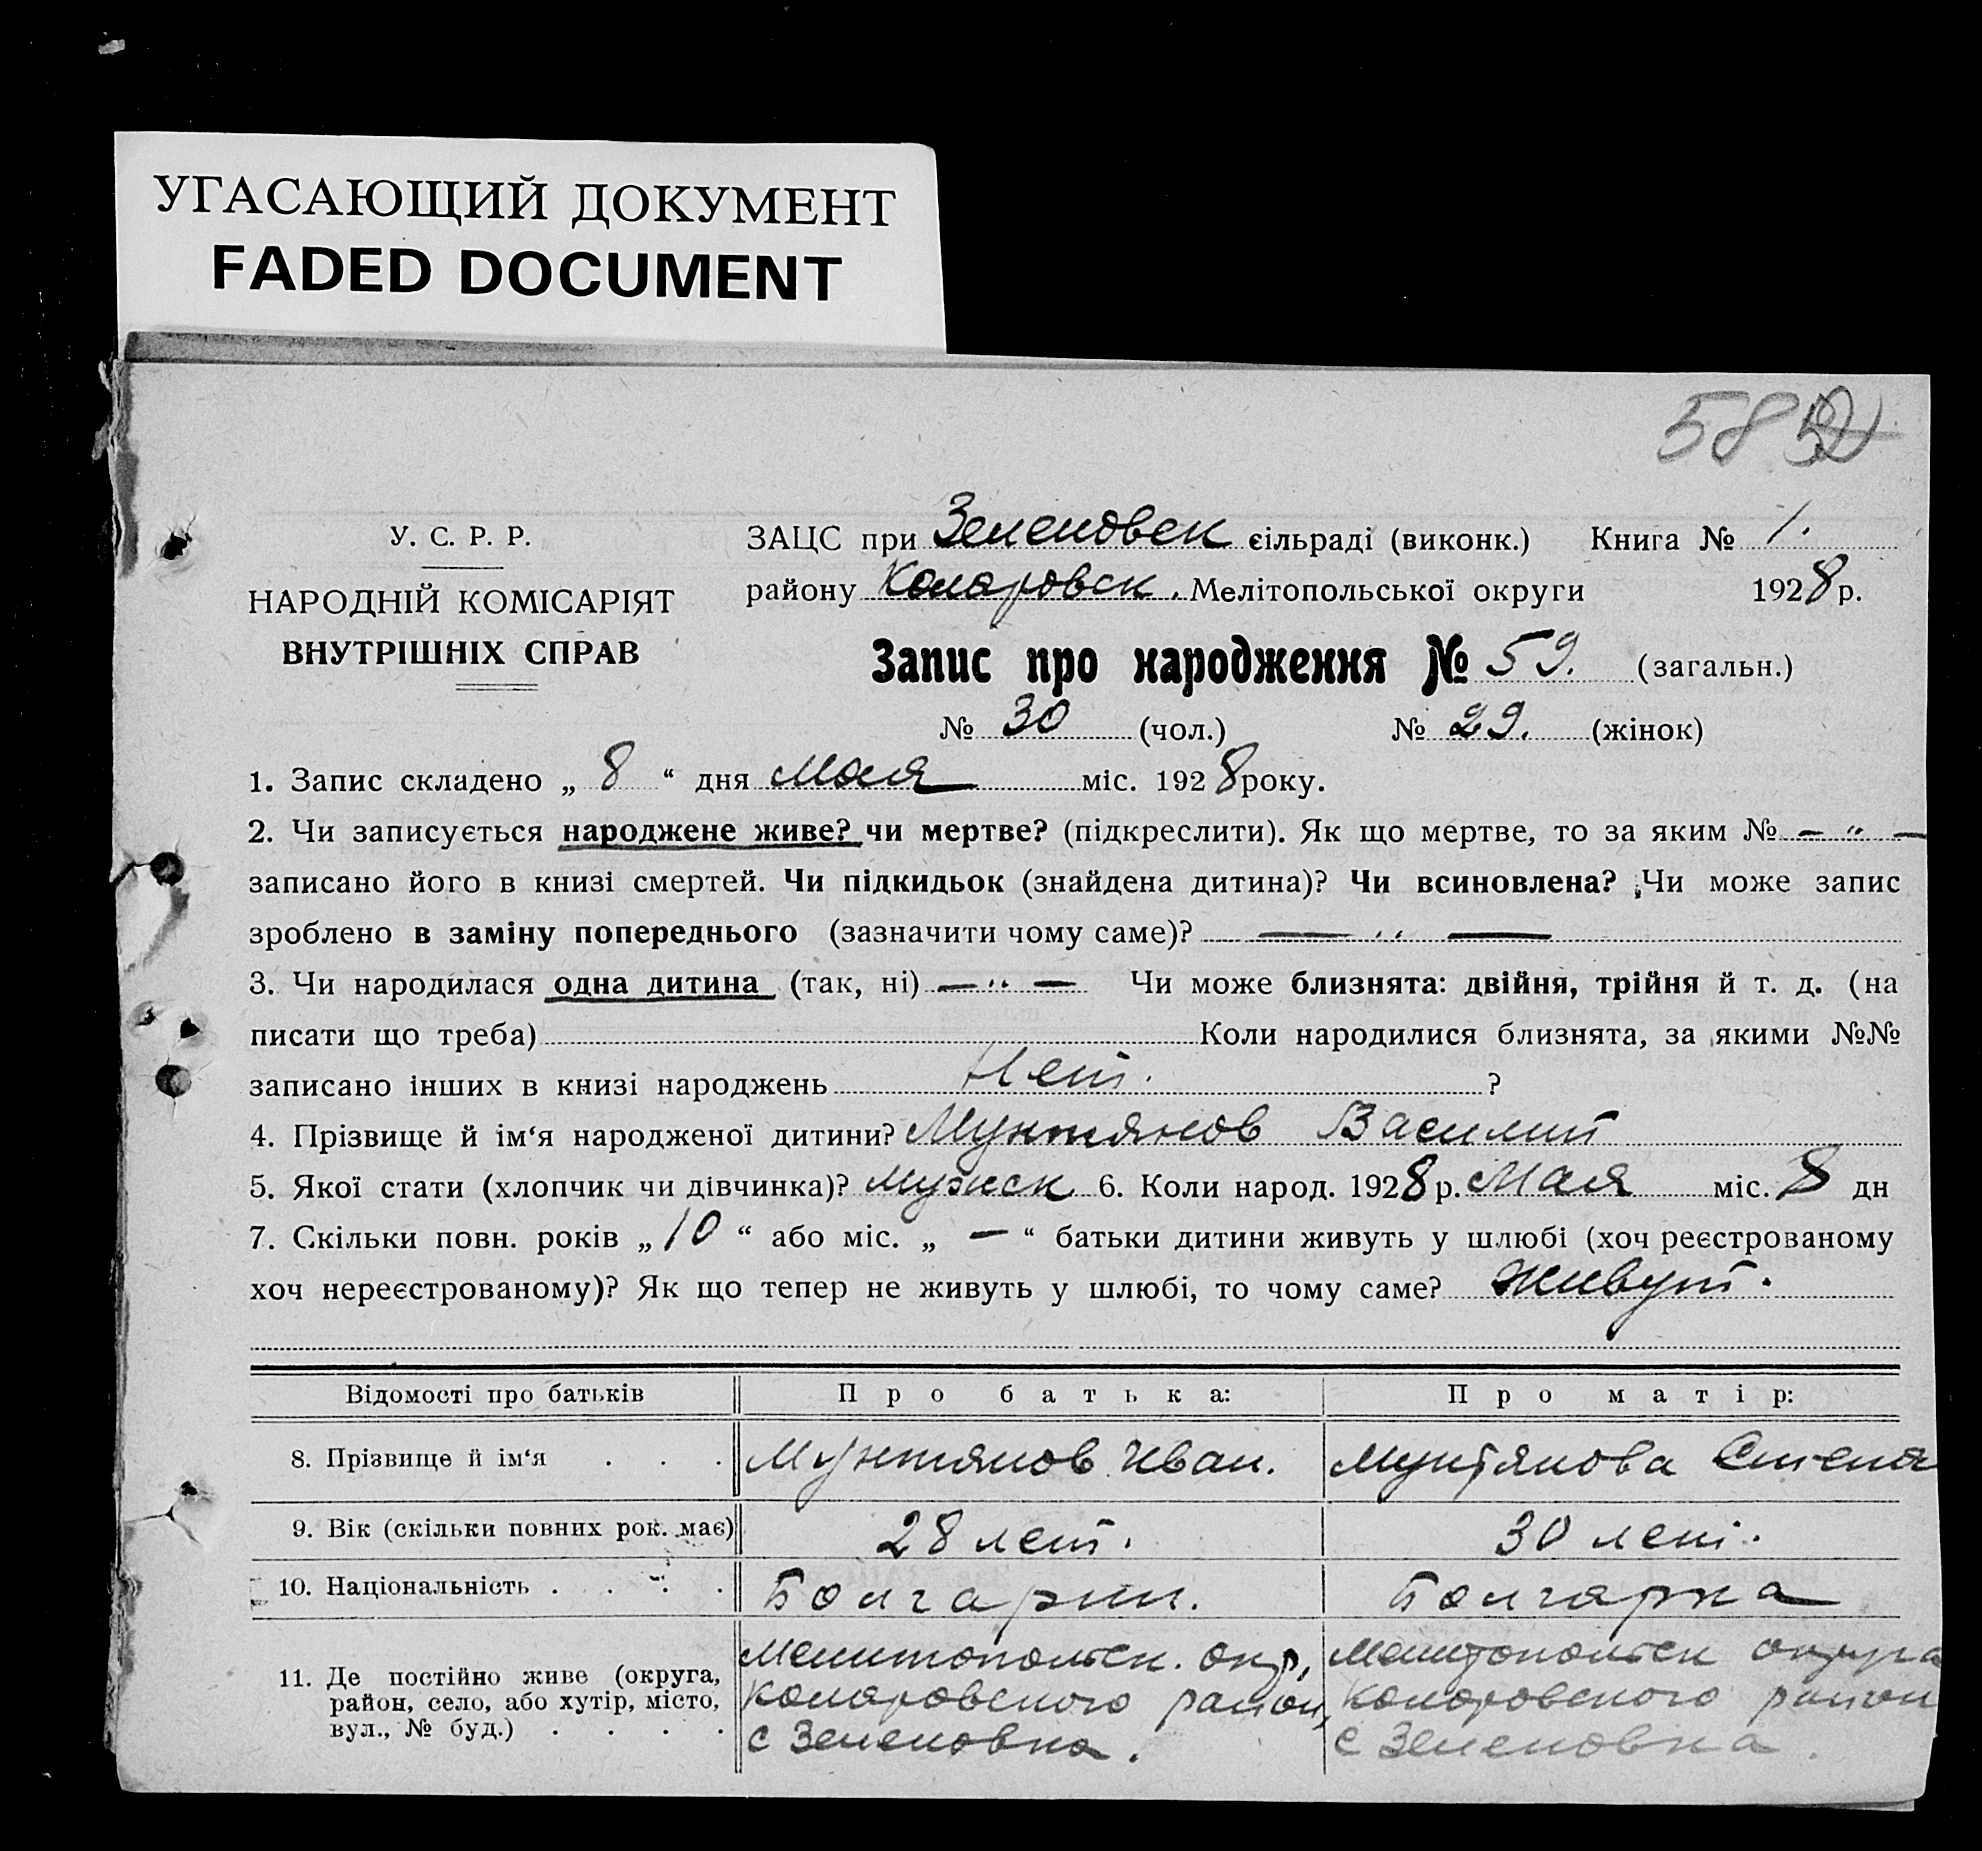 УГАСАЮЩИЙ ДОКУМЕНТ
FADED DOCUMENT
58
У. С. Р. Р.
НАРОДНІЙ КОМІСАРІЯТ
ВНУТРІШНІХ СПРАВ
ЗАЦС при Зеленовск сільраді (виконк.) Книга № 1.
району Коларовск. Мелітопольської округи 1928 р.
Запис про народження № 59. (загальн.)
№ 30 (чол.) № 29. (жінок)
1. Запис складено „ 8 “ дня Мая міс. 1928 року.
2. Чи записується народжене живе? чи мертве? (підкреслити). Як що мертве, то за яким № — „ —
записано його в книзі смертей. Чи підкидьок (знайдена дитина)? Чи всиновлена? Чи може запис
зроблено в заміну попереднього (зазначити чому саме)? — „ —
3. Чи народилася одна дитина (так, ні) — „ — Чи може близнята: двійня, трійня й т. д. (на
писати що треба) Коли народилися близнята, за якими №№
записано інших в книзі народжень Нет. ?
4. Прізвище й ім‘я народженої дитини? Мунтянов Василий
5. Якої стати (хлопчик чи дівчинка)? Мужск 6. Коли народ. 1928 р. Мая міс. 8 дн
7. Скільки повн. років „ 10 “ або міс. „ — “ батьки дитини живуть у шлюбі (хоч реєстрованому
хоч нереєстрованому)? Як що тепер не живуть у шлюбі, то чому саме? Живут.
Відомості про батьків Про батька: Про матір:
8. Прізвище й ім‘я . . . Мунтянов Иван. Мунтянова Стена
9. Вік (скільки повних рок. має) 28 лет. 30 лет.
10. Національність . . . . Болгарин. Болгарка
11. Де постійно живе (округа, район, село, або хутір, місто, вул., № буд.) . . . .
Мелитопольск. окр, Мелитопольск округа
Коларовского район, Коларовского район
с Зеленовка. с Зеленовка.